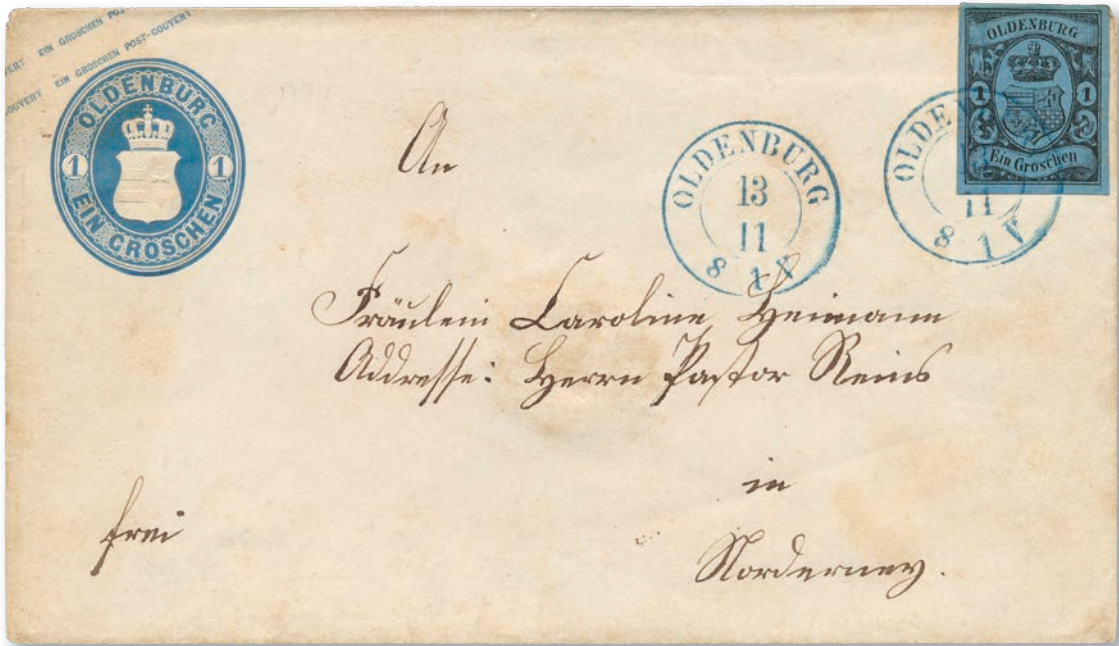 EIN GROSCHEN POST-COUVERT EIN GROSCHEN POST-COUVERT
OLDENBURG
1 1
EIN GROSCHEN
OLDENBURG
1 1
Ein Groschen
OLDENBURG
13
11
8 1 V
11
8 1 V
An
Fräulein Caroline Heimann
Addresse: Herrn Pastor Reins
in
Norderney.
frei